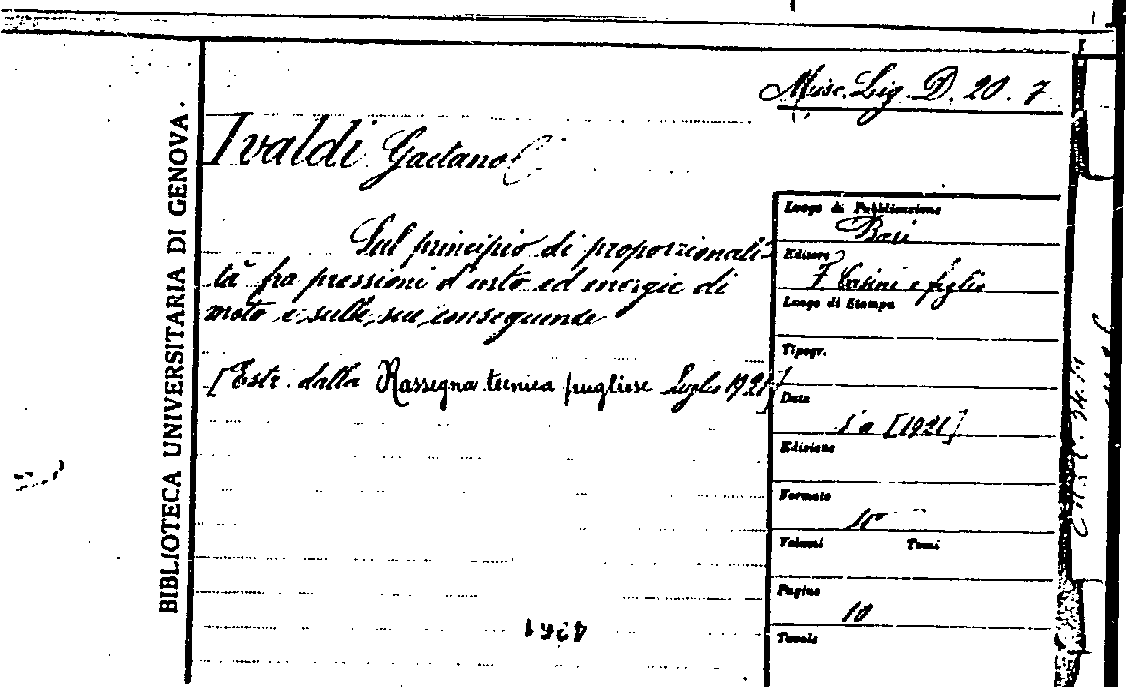 Misc. Lig. D. 20. 7
BIBLIOTECA UNIVERSITARIA DI GENOVA.
Ivaldi Gaetano
Sul principio di proporzionali-
tà fra pressioni d'urto ed energie di
moto e sulle sue conseguenze
[Estr. dalla Rassegna tecnica pugliese luglio 1921]
Luogo di Pubblicazione
Bari
Editore
F Casini e figlio
Luogo di Stampa
Tipogr.
Data
s a [1921]
Edizione
Formato
Volumi Tomi
Pagine
10
Tavole